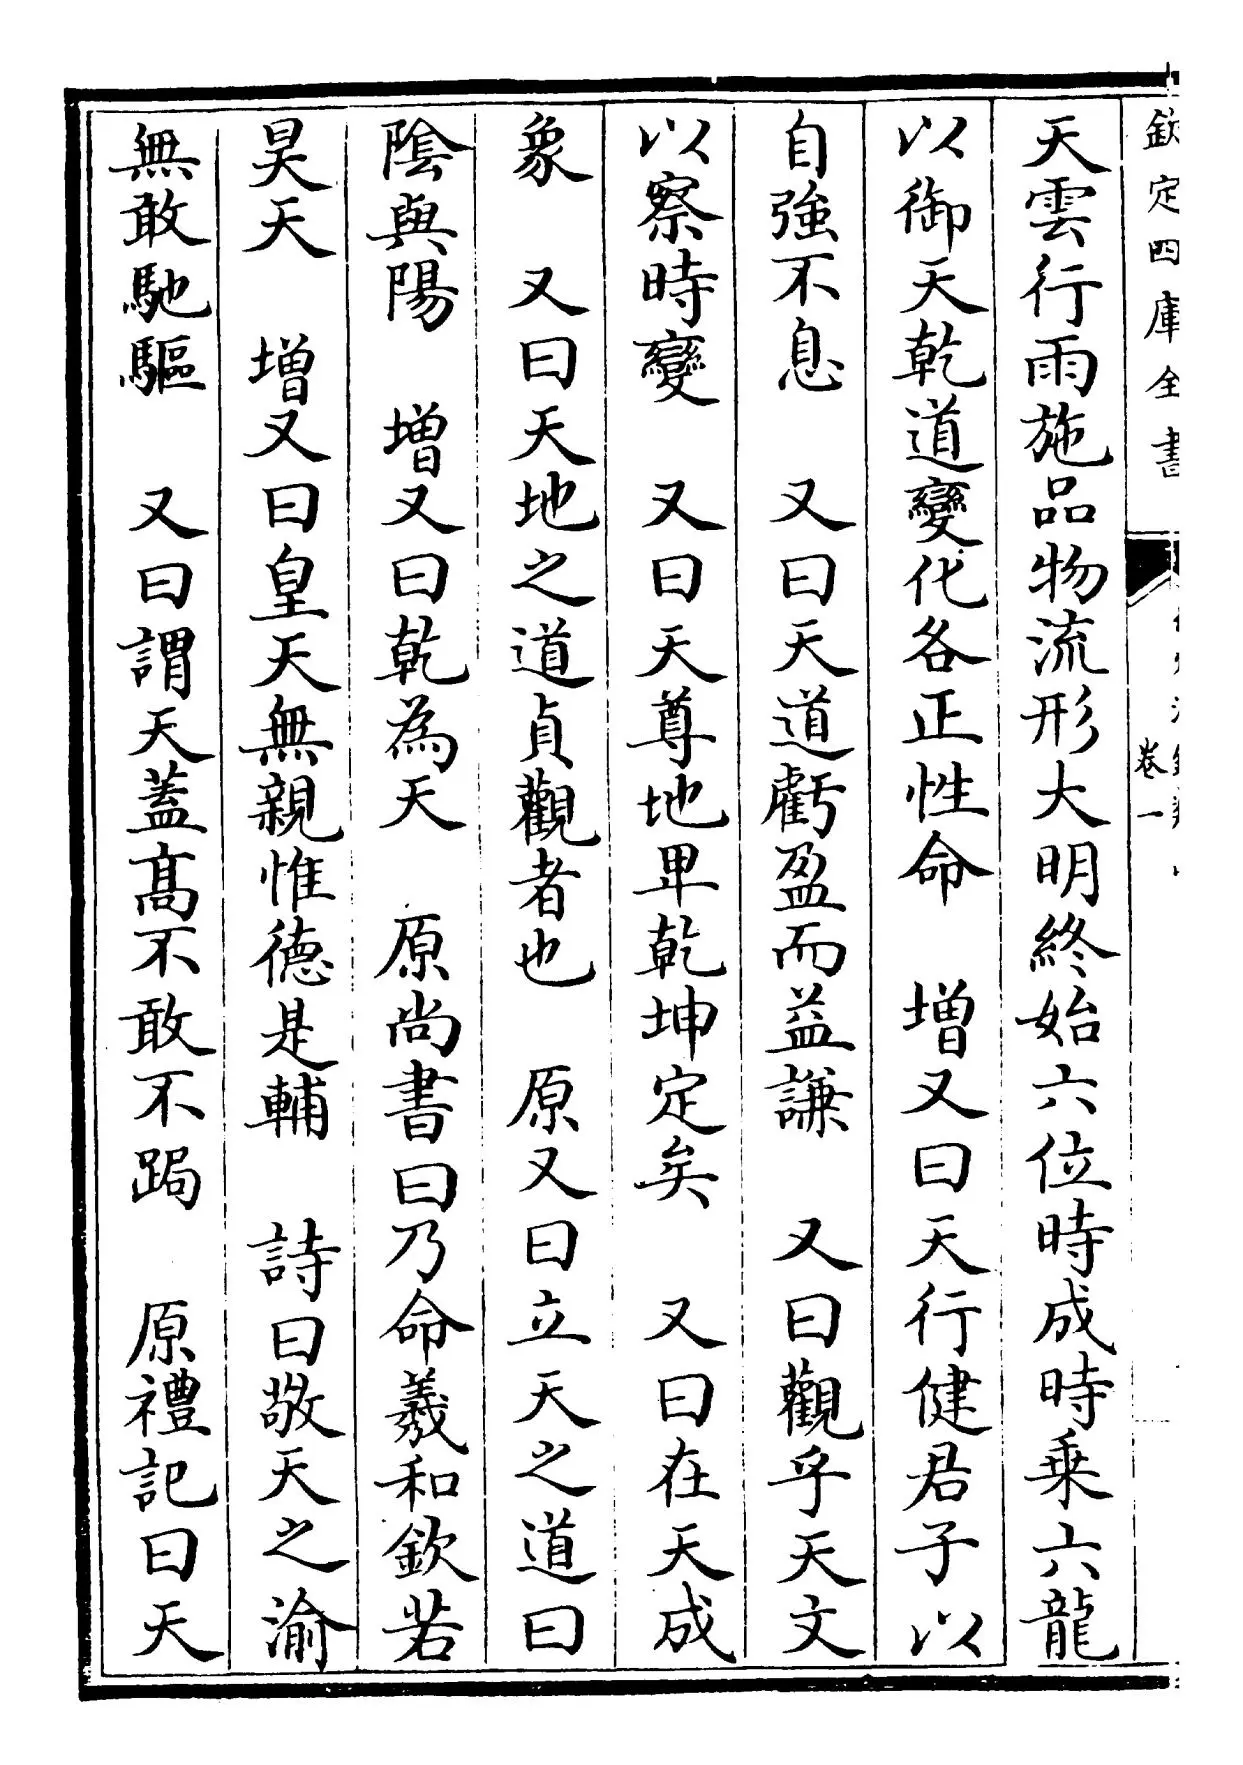 欽定四庫全書
卷一
天雲行雨施品物流形大明終始六位時成時乗六龍
以御天乾道變化各正性命 增又曰天行健君子以
自強不息 又曰天道虧盈而益謙 又曰觀乎天文
以察時變 又曰天尊地卑乾坤定矣 又曰在天成
象 又曰天地之道貞觀者也 原又曰立天之道曰
陰與陽 增又曰乾為天 原尚書曰乃命羲和欽若
昊天 增又曰皇天無親惟德是輔 詩曰敬天之渝
無敢馳驅 又曰謂天蓋髙不敢不跼 原禮記曰天